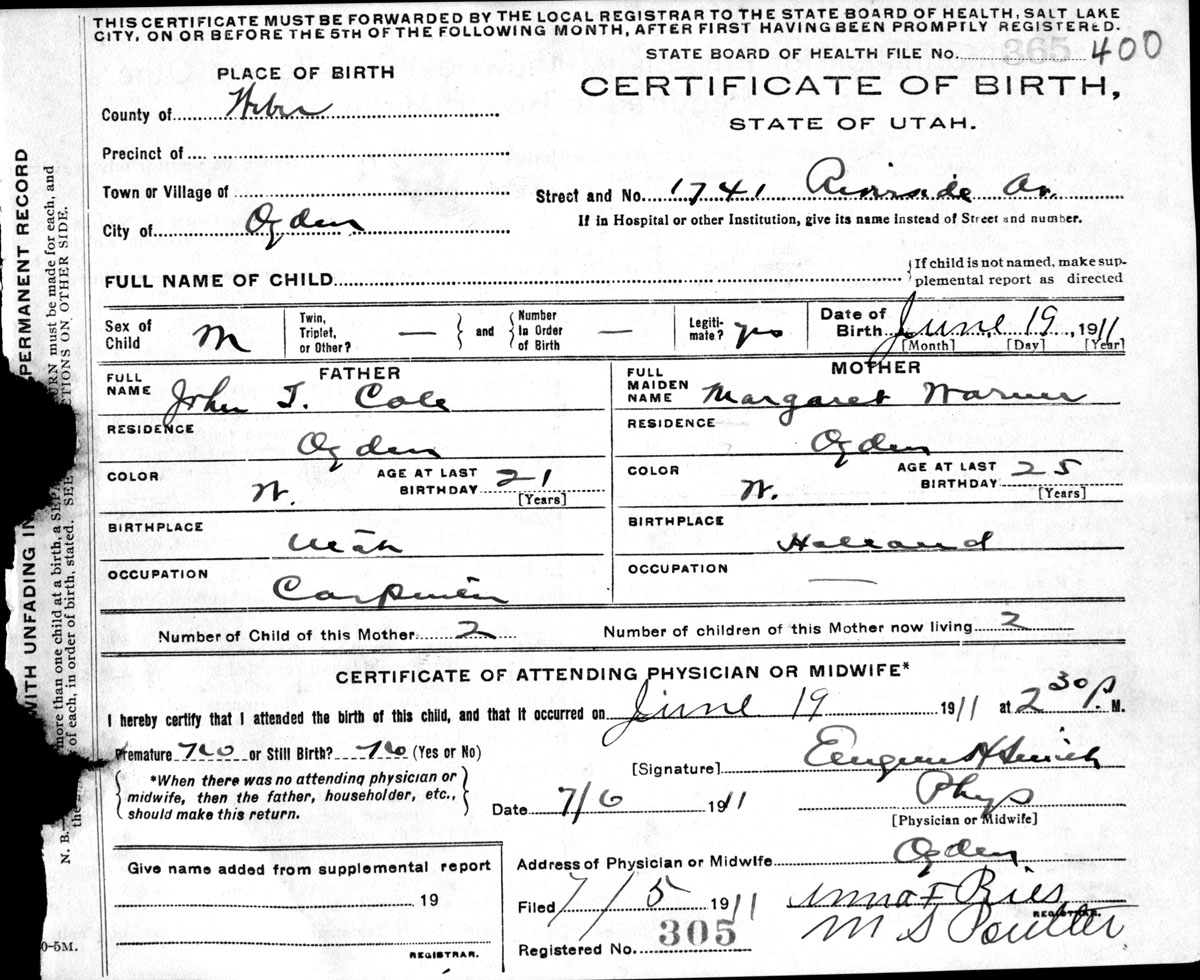 THIS CERTIFICATE MUST BE FORWARDED BY THE LOCAL REGISTRAR TO THE STATE BOARD OF HEALTH, SALT LAKE
CITY, ON OR BEFORE THE 5TH OF THE FOLLOWING MONTH, AFTER FIRST HAVING BEEN PROMPTLY REGISTERED.
STATE BOARD OF HEALTH FILE No. 365 400
PLACE OF BIRTH
CERTIFICATE OF BIRTH,
STATE OF UTAH.
County of Weber
Precinct of
Town or Village of
Street and No. 1741 Riverside Av.
City of Ogden
If in Hospital or other Institution, give its name instead of Street and number.
FULL NAME OF CHILD
If child is not named, make sup-
plemental report as directed
Sex of Child M
Twin, Triplet, or Other? —
and
Number In Order of Birth —
Legiti-mate? yes
Date of Birth June 19, 1911
[Month] [Day] [Year]
FATHER
FULL NAME John T. Cole
MOTHER
FULL MAIDEN NAME Margaret Warner
RESIDENCE Ogden
RESIDENCE Ogden
COLOR W. AGE AT LAST BIRTHDAY 21 [Years]
COLOR W. AGE AT LAST BIRTHDAY 25 [Years]
BIRTHPLACE Utah
BIRTHPLACE Holland
OCCUPATION Carpenter
OCCUPATION —
Number of Child of this Mother 2 Number of children of this Mother now living 2
CERTIFICATE OF ATTENDING PHYSICIAN OR MIDWIFE*
I hereby certify that I attended the birth of this child, and that it occurred on June 19 1911 at 2 30 P. M.
Premature No or Still Birth? No (Yes or No)
*When there was no attending physician or
midwife, then the father, householder, etc.,
should make this return.
[Signature] Eugene H Smith
Date 7/6 1911
Phys
[Physician or Midwife]
Address of Physician or Midwife Ogden
Give name added from supplemental report
19
REGISTRAR.
Filed 7/5 1911 Anna F Ries
REGISTRAR.
Registered No. 305 M S Poulter
WITH UNFADING IN
PERMANENT RECORD
N. B.—
more than one child at a birth, a SEP
URN must be made for each, and
of each, in order of birth, stated. SEE
CTIONS ON OTHER SIDE.
0-5M.